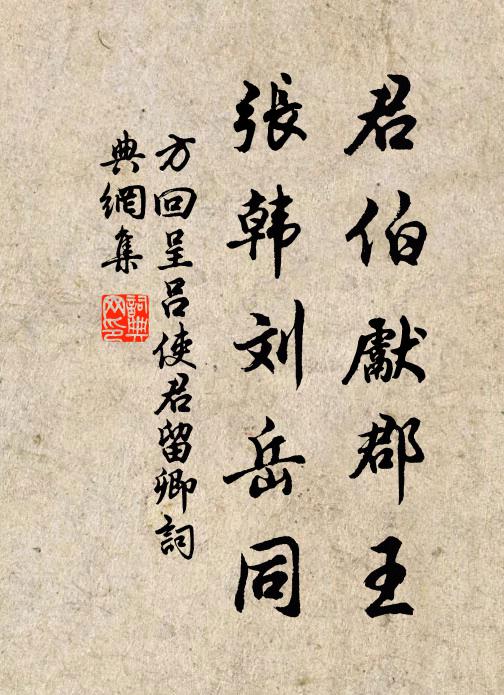 君伯獻郡王
張韩刘岳同
方回呈吕使君留卿詞
典網集
詞典网印